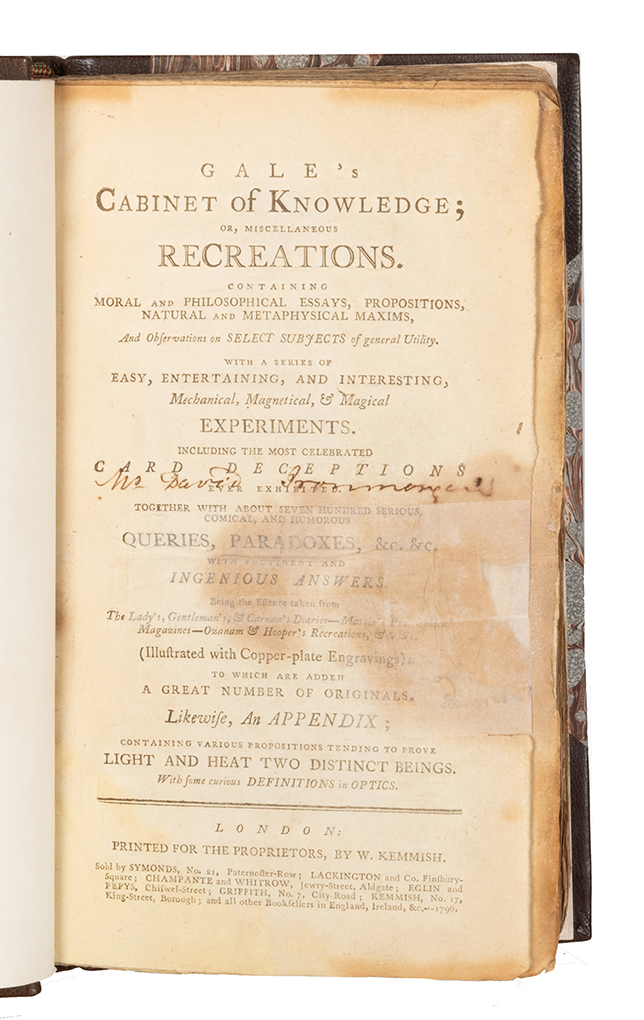 GALE's
CABINET of KNOWLEDGE;
OR, MISCELLANEOUS
RECREATIONS.
CONTAINING
MORAL AND PHILOSOPHICAL ESSAYS, PROPOSITIONS,
NATURAL AND METAPHYSICAL MAXIMS,
And Obſervations on SELECT SUBJECTS of general Utility.
WITH A SERIES OF
EASY, ENTERTAINING, AND INTERESTING,
Mechanical, Magnetical, & Magical
EXPERIMENTS.
INCLUDING THE MOST CELEBRATED
CARD DECEPTIONS
Mr David
EVER EXHIBITED.
TOGETHER WITH ABOUT SEVEN HUNDRED SERIOUS,
COMICAL, AND HUMOROUS
QUERIES, PARADOXES, &c. &c.
WITH PERTINENT AND
INGENIOUS ANSWERS.
Being the Eſſence taken from
The Lady's, Gentleman's, & Carnan's Diaries—
Magazines—Ozanam & Hooper's Recreations,
(Illuſtrated with Copper-plate Engravings).
TO WHICH ARE ADDED
A GREAT NUMBER OF ORIGINALS.
Likewiſe, An APPENDIX;
CONTAINING VARIOUS PROPOSITIONS TENDING TO PROVE
LIGHT AND HEAT TWO DISTINCT BEINGS.
With ſome curious DEFINITIONS in OPTICS.
LONDON:
PRINTED FOR THE PROPRIETORS, BY W. KEMMISH.
Sold by SYMONDS, No. 21, Paternoſter-Row; LACKINGTON and Co. Finſbury-
Square; CHAMPANTE and WHITROW, Jewry-Street, Aldgate; EGLIN and
PEPYS, Chiſwel-Street; GRIFFITH, No. 7, City-Road; KEMMISH, No. 17,
King-Street, Borough; and all other Bookſellers in England, Ireland, &c.—1796.